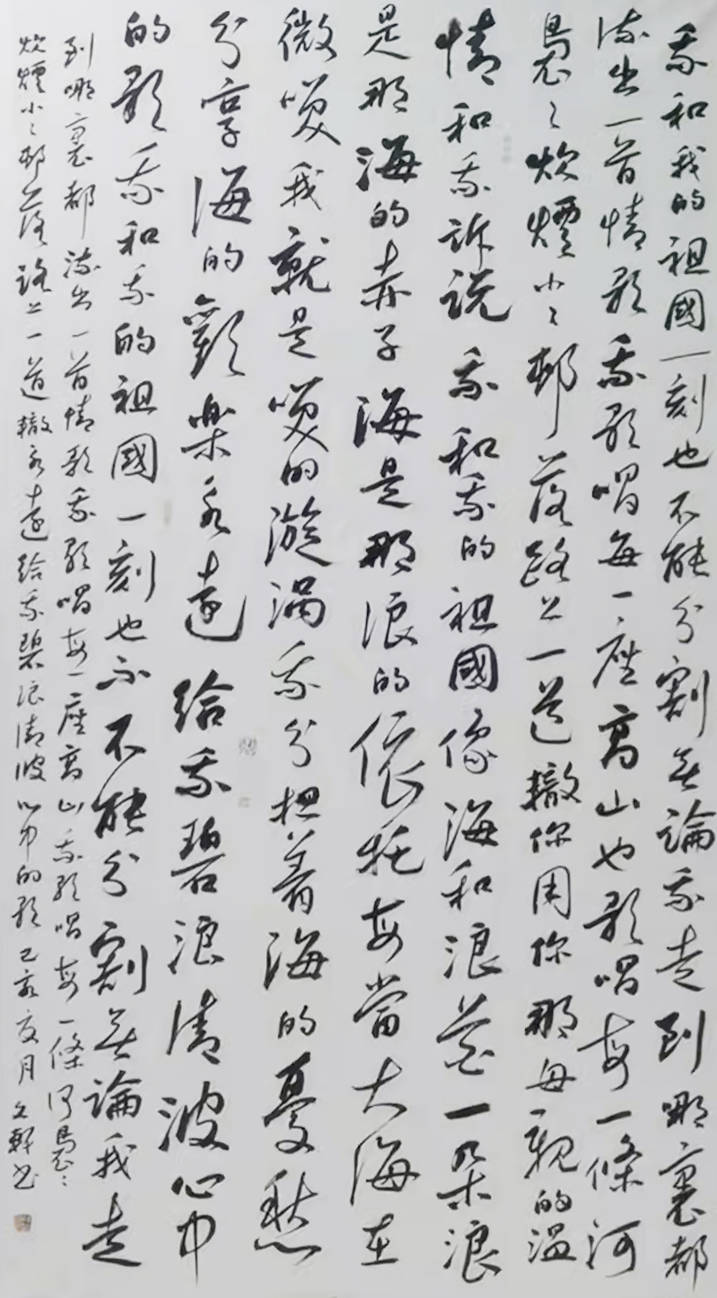 我和我的祖國一刻也不能分割無論我走到哪裏都
流出一首情歌我歌唱每一座高山也歌唱每一條河
裊〻炊煙小〻邨落路上一道轍你用你那母親的溫
情和我訴說我和我的祖國像海和浪花一朵浪
是那海的赤子海是那浪的依托每當大海在
微笑我就是笑的漩渦我分担着海的憂愁
分享海的歡樂永遠給我碧浪清波心中
的歌我和我的祖國一刻也不不能分割無論我走
到哪裏都流出一首情歌我歌唱每一座高山我歌唱每一條河裊〻
炊煙小〻邨落路上一道轍永遠給我碧浪清波心中的歌己亥夏月文軒書